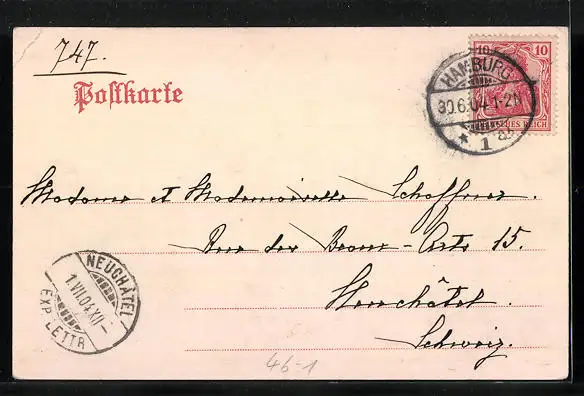 747.
Postkarte
10 10
DEUTSCHES REICH
HAMBURG
30.6.04.1-2N
* 1 ab.
Madame et Mademoiselle Schaffner.
Rue des Beaux-Arts 15.
Neuchâtel.
Schweiz.
NEUCHÂTEL
1.VII.04.XII-
EXP. LETTR.
46-1